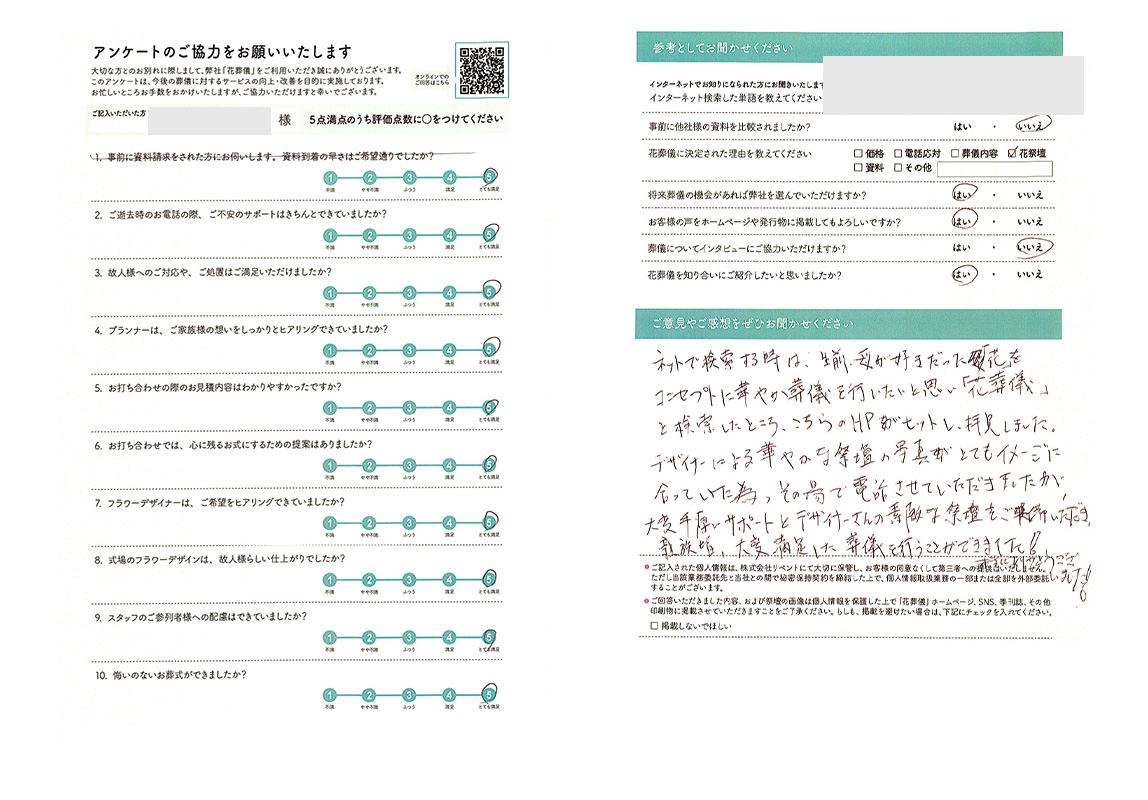 アンケートのご協力をお願いいたします
大切な方とのお別れに際しまして、弊社「花葬儀」をご利用いただき誠にありがとうございます。
このアンケートは、今後の葬儀に対するサービスの向上・改善を目的に実施しております。
お忙しいところお手数をおかけいたしますが、ご協力いただけますと幸いでございます。
オンラインでの
ご回答はこちら
ご記入いただいた方
様
5点満点のうち評価点数に○をつけてください
1. 事前に資料請求をされた方にお伺いします。資料到着の早さはご希望通りでしたか?
1 2 3 4 5
不満 やや不満 ふつう 満足 とても満足
2. ご逝去時のお電話の際、ご不安のサポートはきちんとできていましたか?
1 2 3 4 5
不満 やや不満 ふつう 満足 とても満足
3. 故人様へのご対応や、ご処置はご満足いただけましたか?
1 2 3 4 5
不満 やや不満 ふつう 満足 とても満足
4. プランナーは、ご家族様の想いをしっかりとヒアリングできていましたか?
1 2 3 4 5
不満 やや不満 ふつう 満足 とても満足
5. お打ち合わせの際のお見積内容はわかりやすかったですか?
1 2 3 4 5
不満 やや不満 ふつう 満足 とても満足
6. お打ち合わせでは、心に残るお式にするための提案はありましたか?
1 2 3 4 5
不満 やや不満 ふつう 満足 とても満足
7. フラワーデザイナーは、ご希望をヒアリングできていましたか?
1 2 3 4 5
不満 やや不満 ふつう 満足 とても満足
8. 式場のフラワーデザインは、故人様らしい仕上がりでしたか?
1 2 3 4 5
不満 やや不満 ふつう 満足 とても満足
9. スタッフのご参列者様への配慮はできていましたか?
1 2 3 4 5
不満 やや不満 ふつう 満足 とても満足
10. 悔いのないお葬式ができましたか?
1 2 3 4 5
不満 やや不満 ふつう 満足 とても満足
参考としてお聞かせください
インターネットでお知りになられた方にお聞きいたします
インターネット検索した単語を教えてください
事前に他社様の資料を比較されましたか? はい ・ いいえ
花葬儀に決定された理由を教えてください □ 価格 □ 電話応対 □ 葬儀内容 ☑ 花祭壇
□ 資料 □ その他
将来葬儀の機会があれば弊社を選んでいただけますか? はい ・ いいえ
お客様の声をホームページや発行物に掲載してもよろしいですか? はい ・ いいえ
葬儀についてインタビューにご協力いただけますか? はい ・ いいえ
花葬儀を知り合いにご紹介したいと思いましたか? はい ・ いいえ
ご意見やご感想をぜひお聞かせください
ネットで検索する時は、生前、父が好きだった「花」を
コンセプトに華やか葬儀を行いたいと思い「花葬儀」
と検索したところ、こちらのHPがヒットし、拝見しました。
デザイナーによる華やかな祭壇の写真がとてもイメージに
合っていた為、その場で電話させていただきましたが、
大変手厚いサポートとデザイナーさんの素敵な祭壇をご いただき、
親族皆、大変満足した葬儀を行うことができました!
本当にありがとうござ
いました!
● ご記入された個人情報は、株式会社リベントにて大切に保管し、お客様の同意なくして第三者への提供はいたしません。
ただし当該業務委託先と当社との間で秘密保持契約を締結した上で、個人情報取扱業務の一部または全部を外部委託
することがございます。
● ご回答いただきました内容、および祭壇の画像は個人情報を保護した上で「花葬儀」ホームページ、SNS、季刊誌、その他
印刷物に掲載させていただきますことをご了承ください。もしも、掲載を避けたい場合は、下記にチェックを入れてください。
□ 掲載しないでほしい